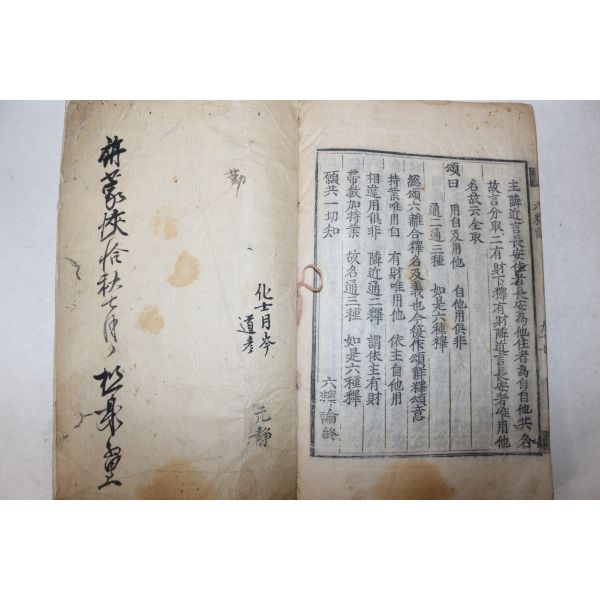 主隣近言長安住者長安為他住者為自自他共名
故言分取二有財下釋有財隣近言長安者唯用他
名故云全取
頌曰 用自及用他 自他用俱非
通二通三種 如是六種釋
總頌六離合釋名及義也今復作頌解釋頌意
持業唯用自 有財唯用他 依主自他用
相違用俱非 隣近通二釋 謂依主有財
帶數加持業 故名通三種 如是六種釋
願共一切知
六釋論終
勤
化士月岑
道彦
元靜
秋七月